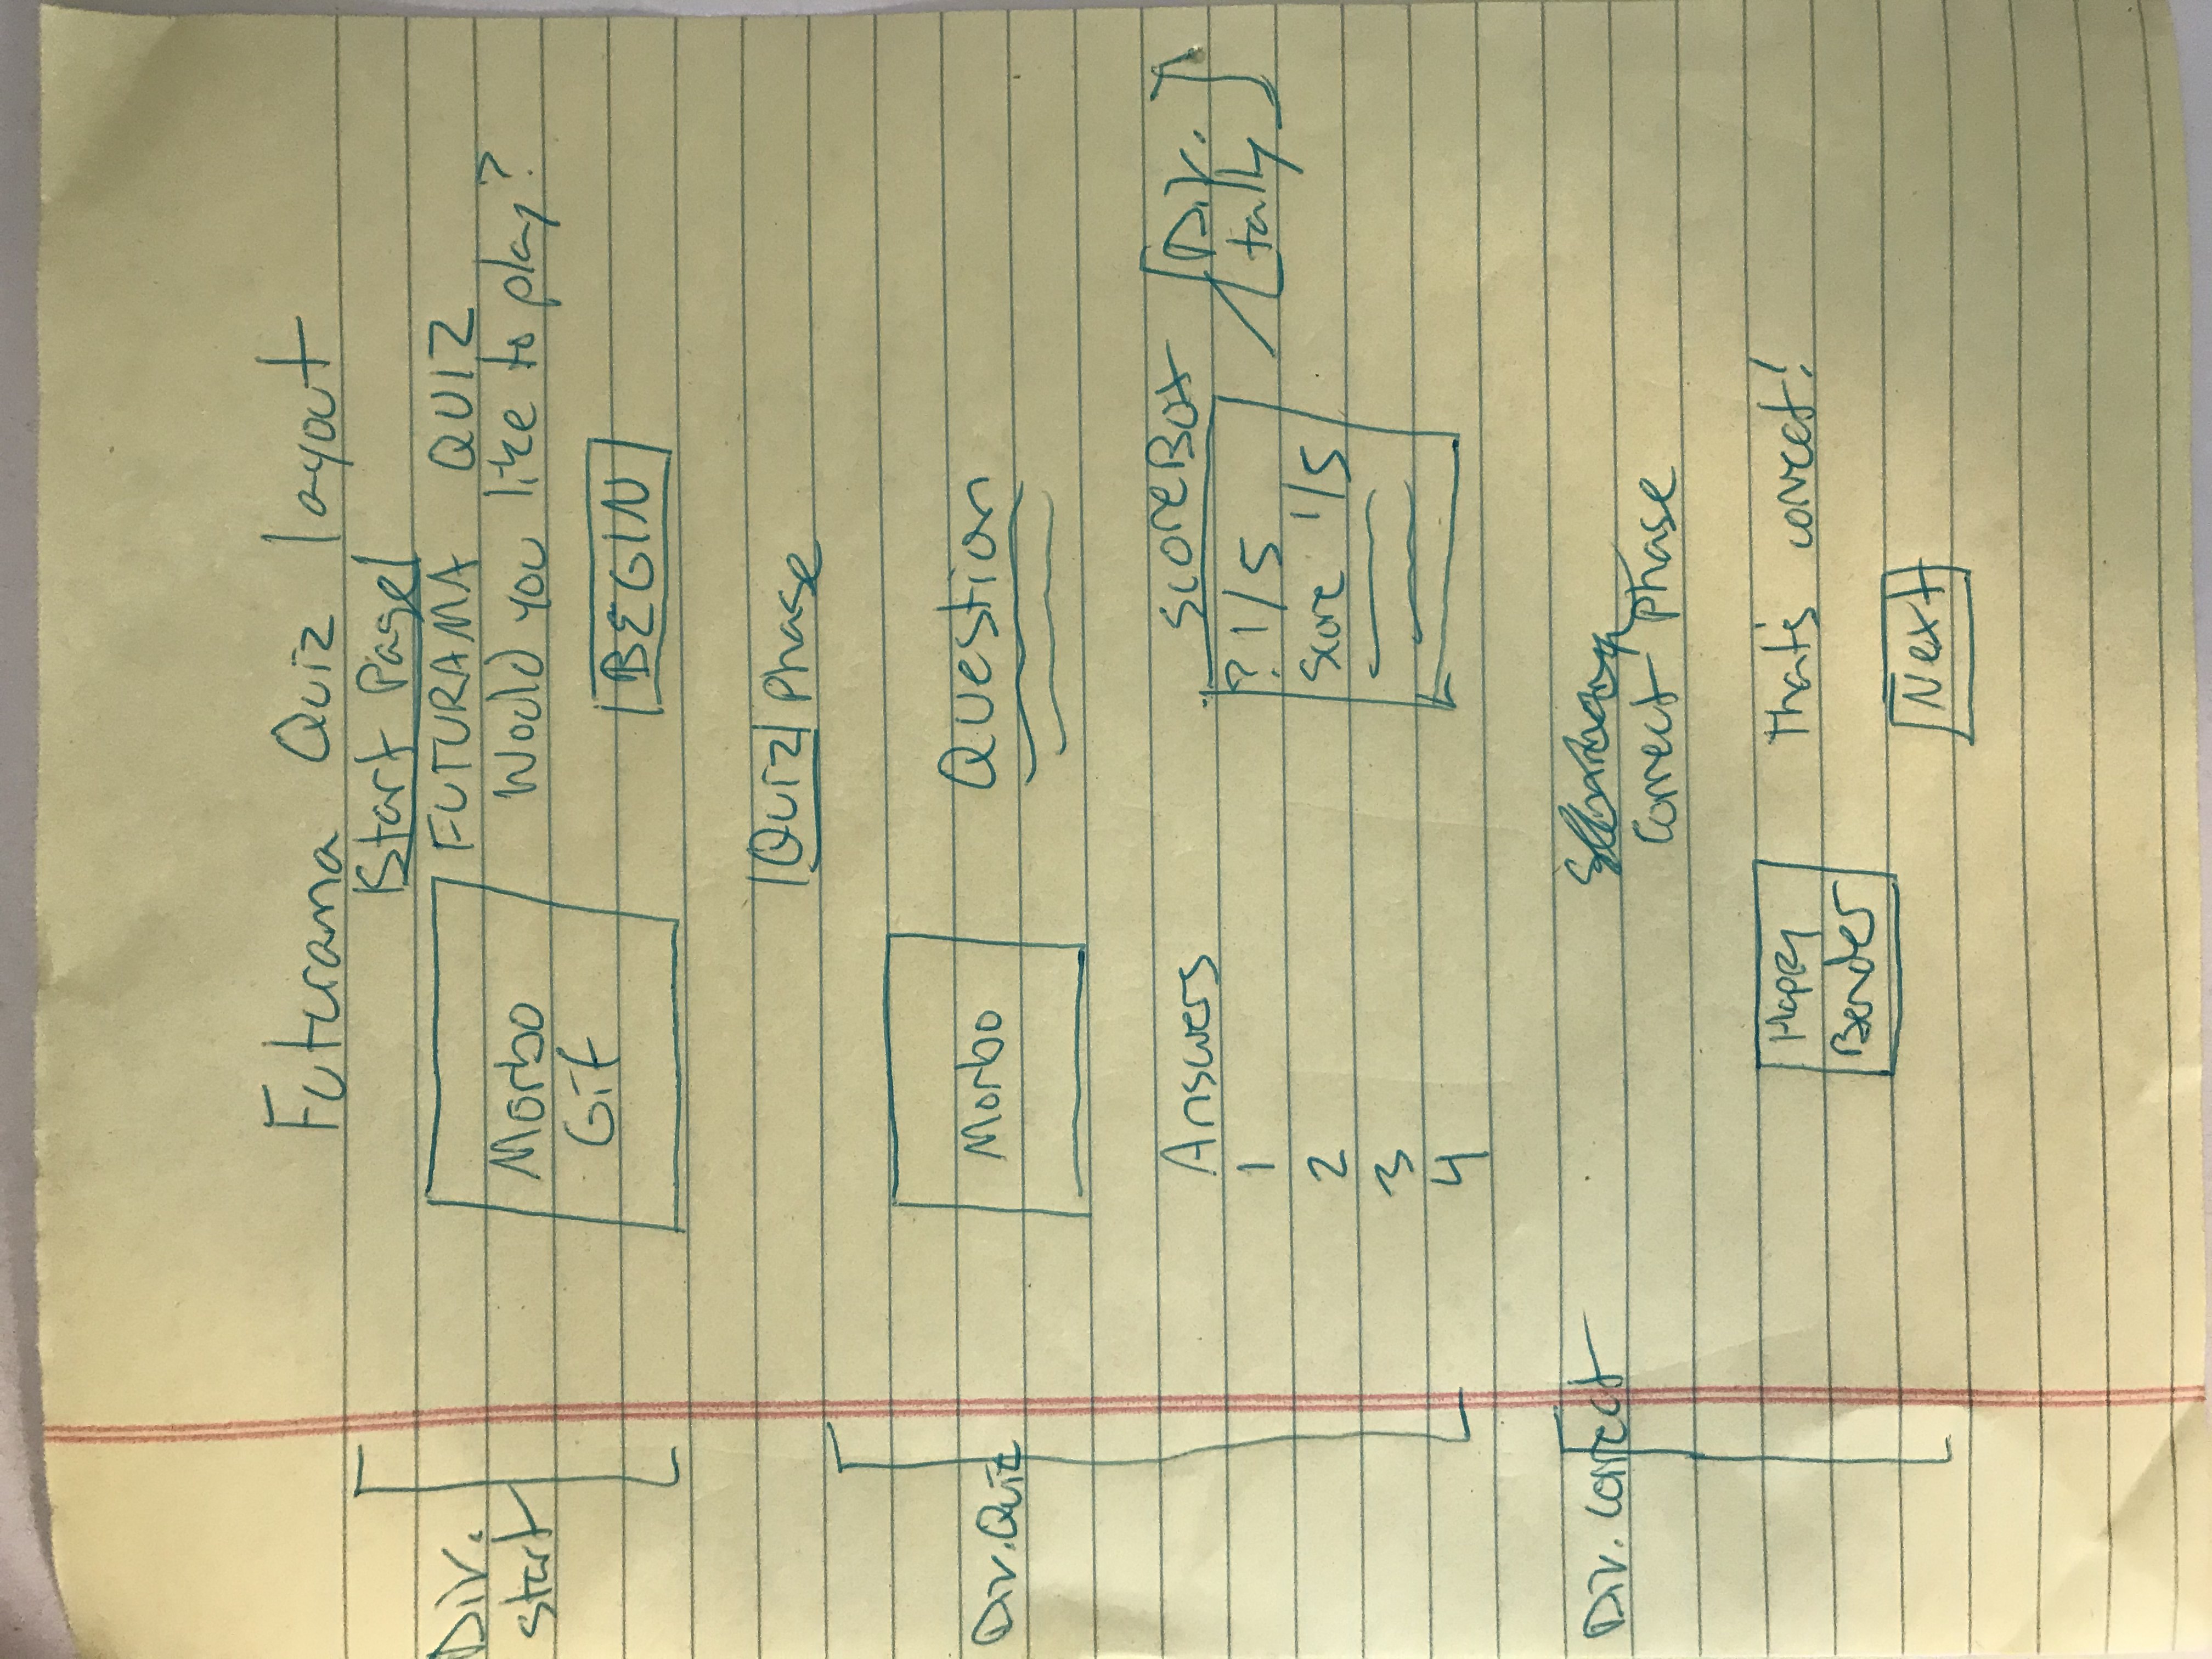 Futurama Quiz layout
Start Page
Div. start
Morbo Gif
FUTURAMA QUIZ
Would you like to play?
BEGIN
Quiz Phase
Div. Quiz
Morbo
Question
Answers
1
2
3
4
ScoreBox
? 1/5
Score 1/5
Div. tally
Div. correct
Correct Phase
Happy
Bender
That's correct!
Next